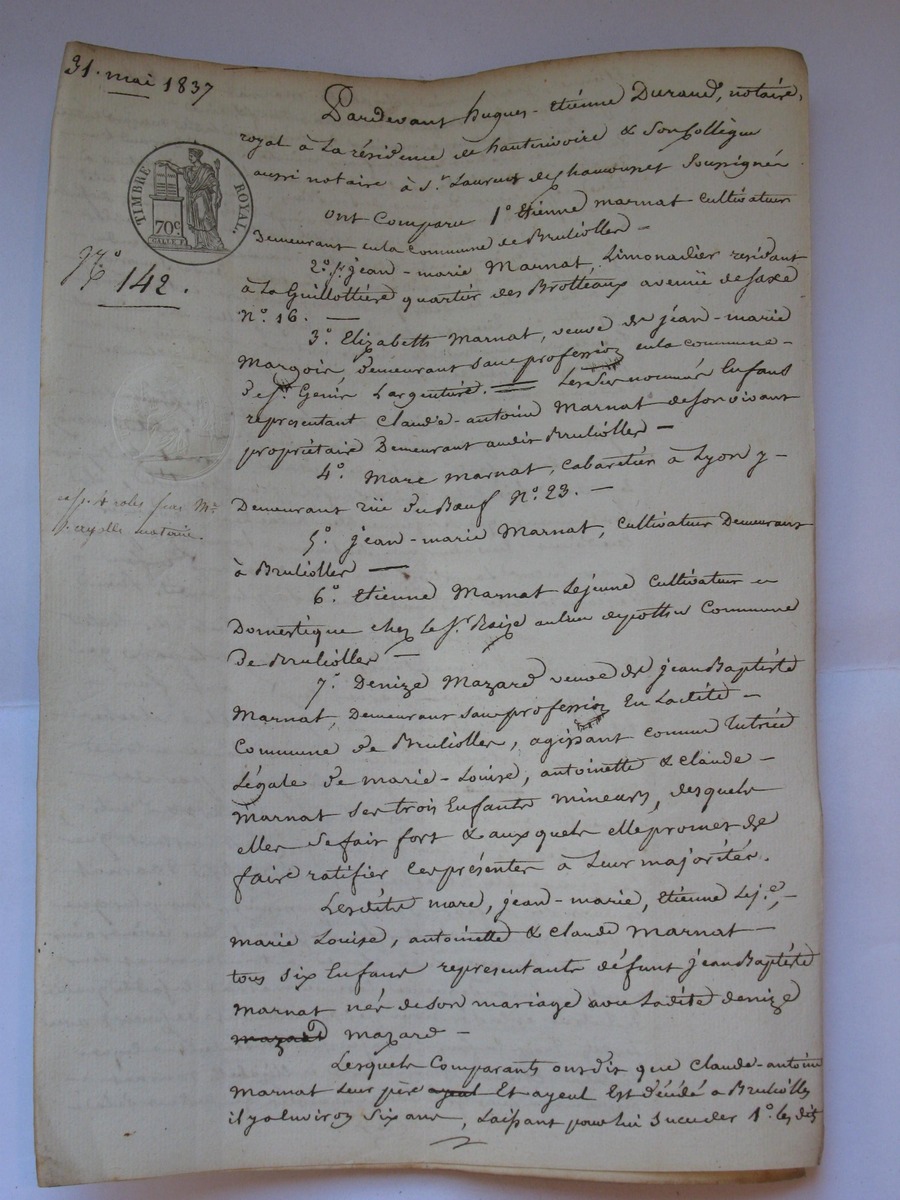 31. mai 1837
Pardevant hugues-Etiénne Durand, notaire,
royal à La résidence de hauterivoire & Son Collègue
aussi notaire à St. Laurent de chamousset Soussignés
TIMBRE ROYAL.
70c.
ont Comparu 1o. Etienne marnat Cultivateur
Demeurant en la commune de Brullioller —
No. 142.
2o. Sr. jean-marie Marnat, Limonadier residant
à La Guillottière quartier des Brotteaux avenüe de Saxe
No. 16. —
3o. Elizabeth Marnat, veuve de jéan-marie
demeurant sans profession en la commune
de St. Genis Largentière. — Les Sus nommés Enfans
représentant Claude-antoine Marnat de son vivant
propriétaire Demeurant audit Brullioller —
4o. Marc marnat, Cabaretier à Lyon y
Demeurant rüe Du Bœuf No. 23. —
exp. 4 roles par Me.
notaire.
5o. jean-marie Marnat, Cultivateur Demeurant
à Brullioller —
6o. Etienne Marnat Lejeune Cultivateur
Domestique chez le Sr. au lieu Commune
De Brullioller —
7o. Denize Mazard veuve de jean Baptiste
Marnat, Demeurant Sans profession En Ladite
Commune de Brullioller, agissant comme tutrice
Légale de marie-Louise, antoinette & claude
Marnat Ses trois Enfants mineurs, desquels
elle Se fait fort & auxquels elle promet de
faire ratifier Les présentes à Leur majorités.
Lesdits marc, jean-marie, Etienne Leje.,
marie Louise, antoinette & claude Marnat
tous Six Enfans représentants défunt jean Baptiste
Marnat nés de Son mariage avec Ladite denize
mazard mazard —
Lesquels Comparants ont dit que Claude-antoine
Marnat Leur père ayeul Et ayeul Est décédé à Brullioller
il y a Environ Six ans, Laissant pour lui Succeder 1o. les dits